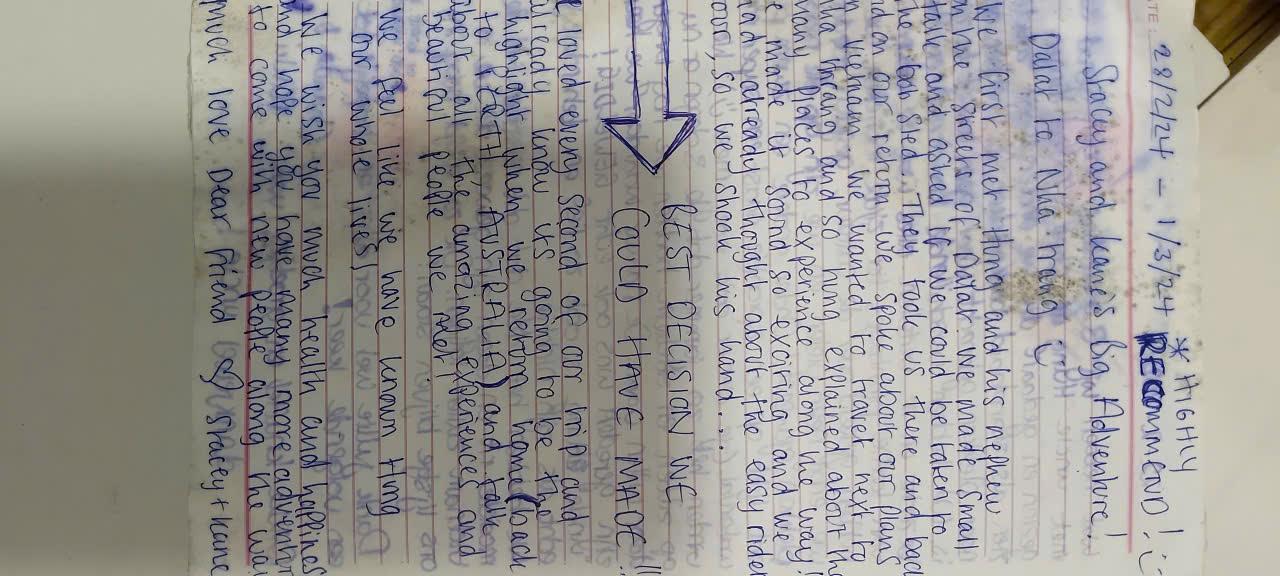 DATE 28/2/24 - 1/3/24 * HIGHLY
RECOMMEND! :)
Stacey and Kane's Big Adventure!
Dalat to Nha trang :)
We first met Hung and his nephew
on the streets of Dalat. We made small
talk and asked if we could be taken to
the bus sted. They took us there and back
and on our return we spoke about our plans
in Vietnam. We wanted to travel next to
Nha trang and so hung explained about the
Many places to experience along the way!
He made it sound so exciting and we
had already thought about the easy rider
tour, so we shook his hand...
BEST DECISION WE
COULD HAVE MADE!!
We loved every second of our trip and
already know its going to be the
highlight when we return home (back
to PERTH AUSTRALIA) and talk
about all the amazing experiences and
beautiful people we met
We feel like we have known Hung
our whole lives,
We wish you much health and happines
and hope you have many more adventur
to come with new people along the wa
much love Dear friend Stacey + Kane